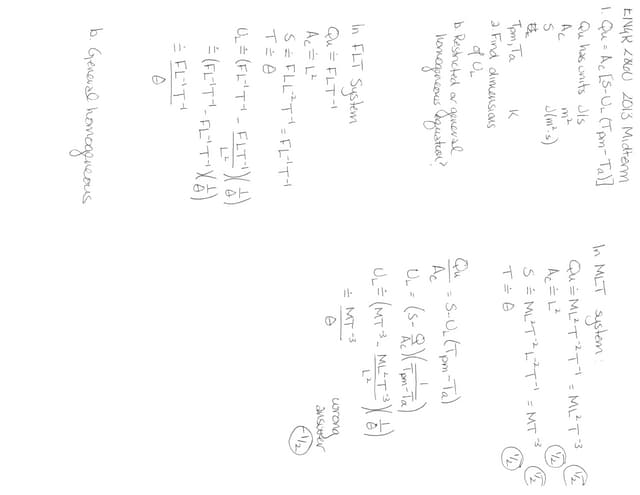 ENGR 2060 2013 Midterm
1. Qu = Ac[S-UL(Tpm-Ta)]
Qu has units J/s
Ac m²
S J/(m²·s)
Tpm,Ta K
a Find dimensions
of UL
b. Restricted or general
homogeneous equation?
In FLT System
Qu ≐ FLT⁻¹
Ac ≐ L²
S ≐ FLL⁻²T⁻¹ = FL⁻¹T⁻¹
T ≐ θ
UL ≐ (FL⁻¹T⁻¹ - FLT⁻¹/L²)(1/θ)
≐ (FL⁻¹T⁻¹ - FL⁻¹T⁻¹)(1/θ)
≐ FL⁻¹T⁻¹/θ
b. General homogeneous
In MLT system:
Qu ≐ ML²T⁻²T⁻¹ = ML²T⁻³ 1/2
Ac ≐ L² 1/2
S ≐ ML²T⁻²L⁻²T⁻¹ = MT⁻³ 1/2
T ≐ θ 1/2
Qu/Ac = S-UL(Tpm-Ta)
UL = (S-Q/Ac)(1/Tpm-Ta)
UL ≐ (MT⁻³ - ML²T⁻³/L²)(1/θ)
≐ MT⁻³/θ
wrong
answer
-1/2